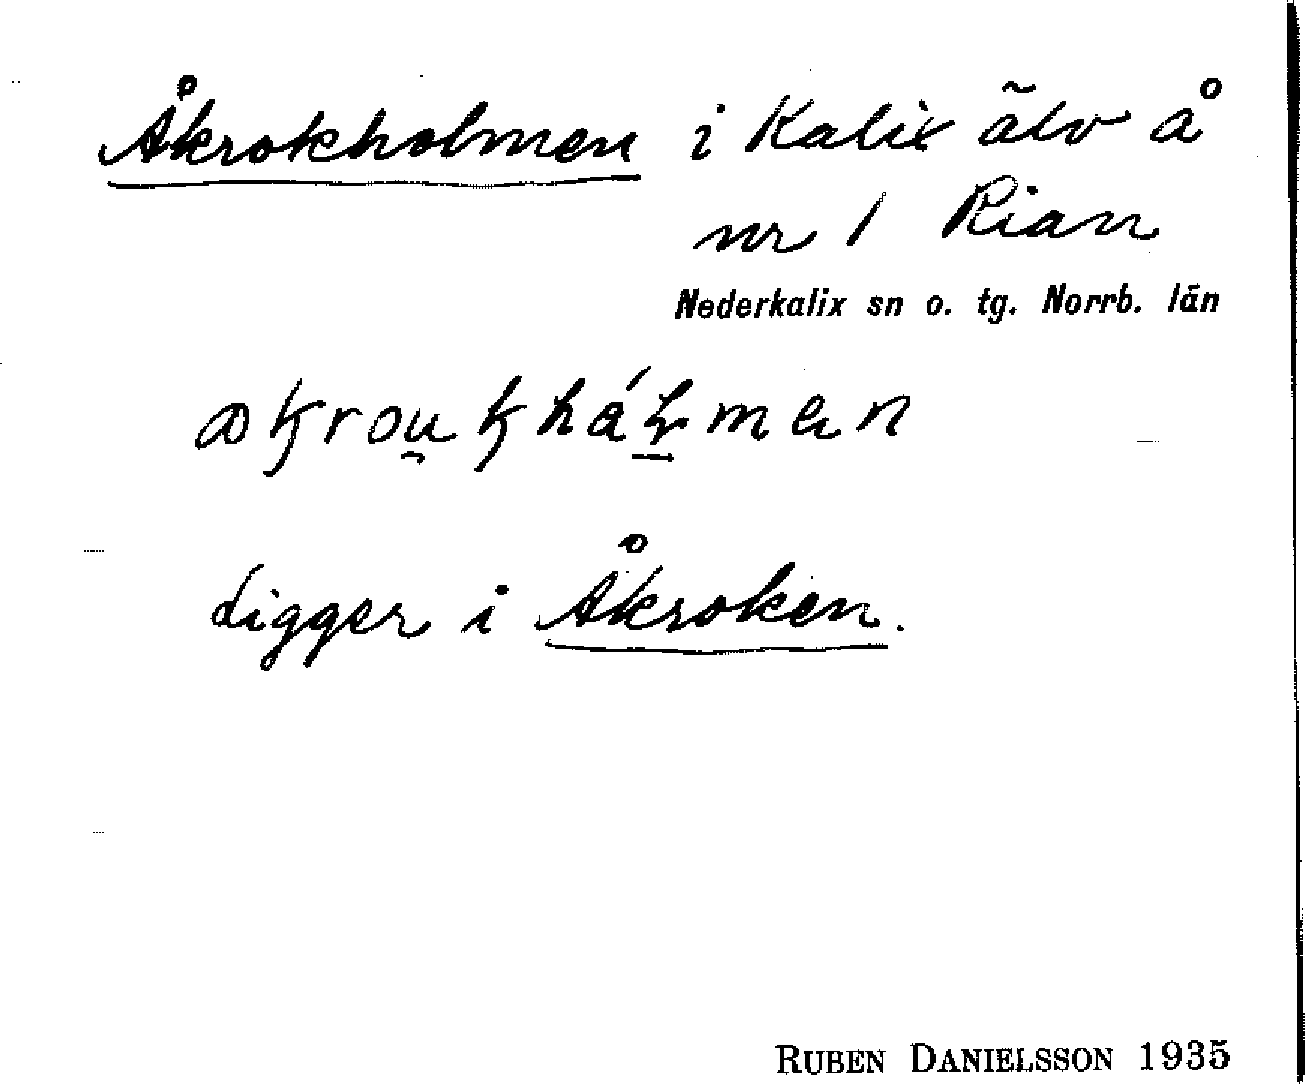 Åkrokholmen i Kalix älv å
nr 1 Rian
Nederkalix sn o. tg. Norrb. län
Ligger i Åkroken.
RUBEN DANIELSSON 1935